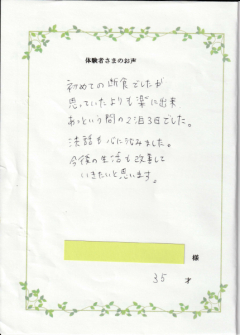 体験者さまのお声
初めての断食でしたが
思っていたよりも楽に出来
あっという間の2泊3日でした。
法話も心に沁みました。
今後の生活も改善して
いきたいと思います。
様
35 才